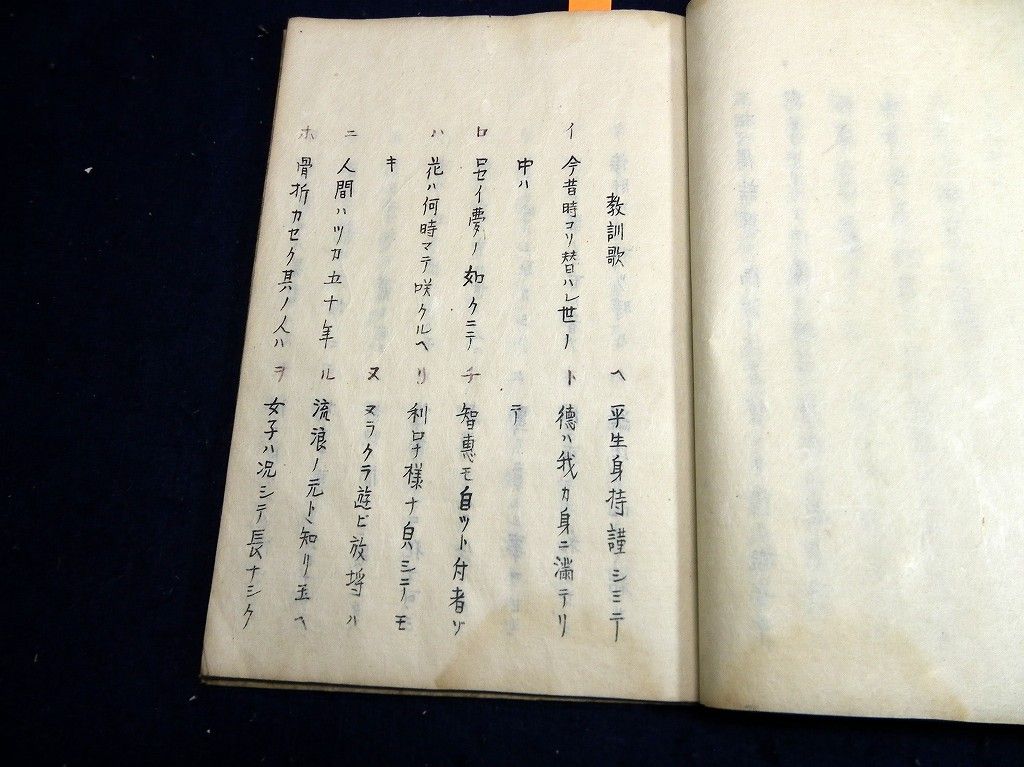 教訓歌
イ 今昔時コソ替ハレ世ノ
中ハ
ロ 呂セイ夢ノ如クニテ
ハ 花ハ何時マテ咲クルヘ
キ
ニ 人間ハツカ五十年
ホ 骨折カセク其ノ人ハ
ヘ 平生身持謹シミテ
ト 徳ハ我カ身ニ満テリ
テ
チ 智惠モ自ット付者ゾ
リ 利口ナ様ナ皃シテモ
ヌ ヌラクラ遊ビ放埒ハ
ル 流浪ノ元ト知リ玉ヘ
ヲ 女子ハ況シテ長ナシク